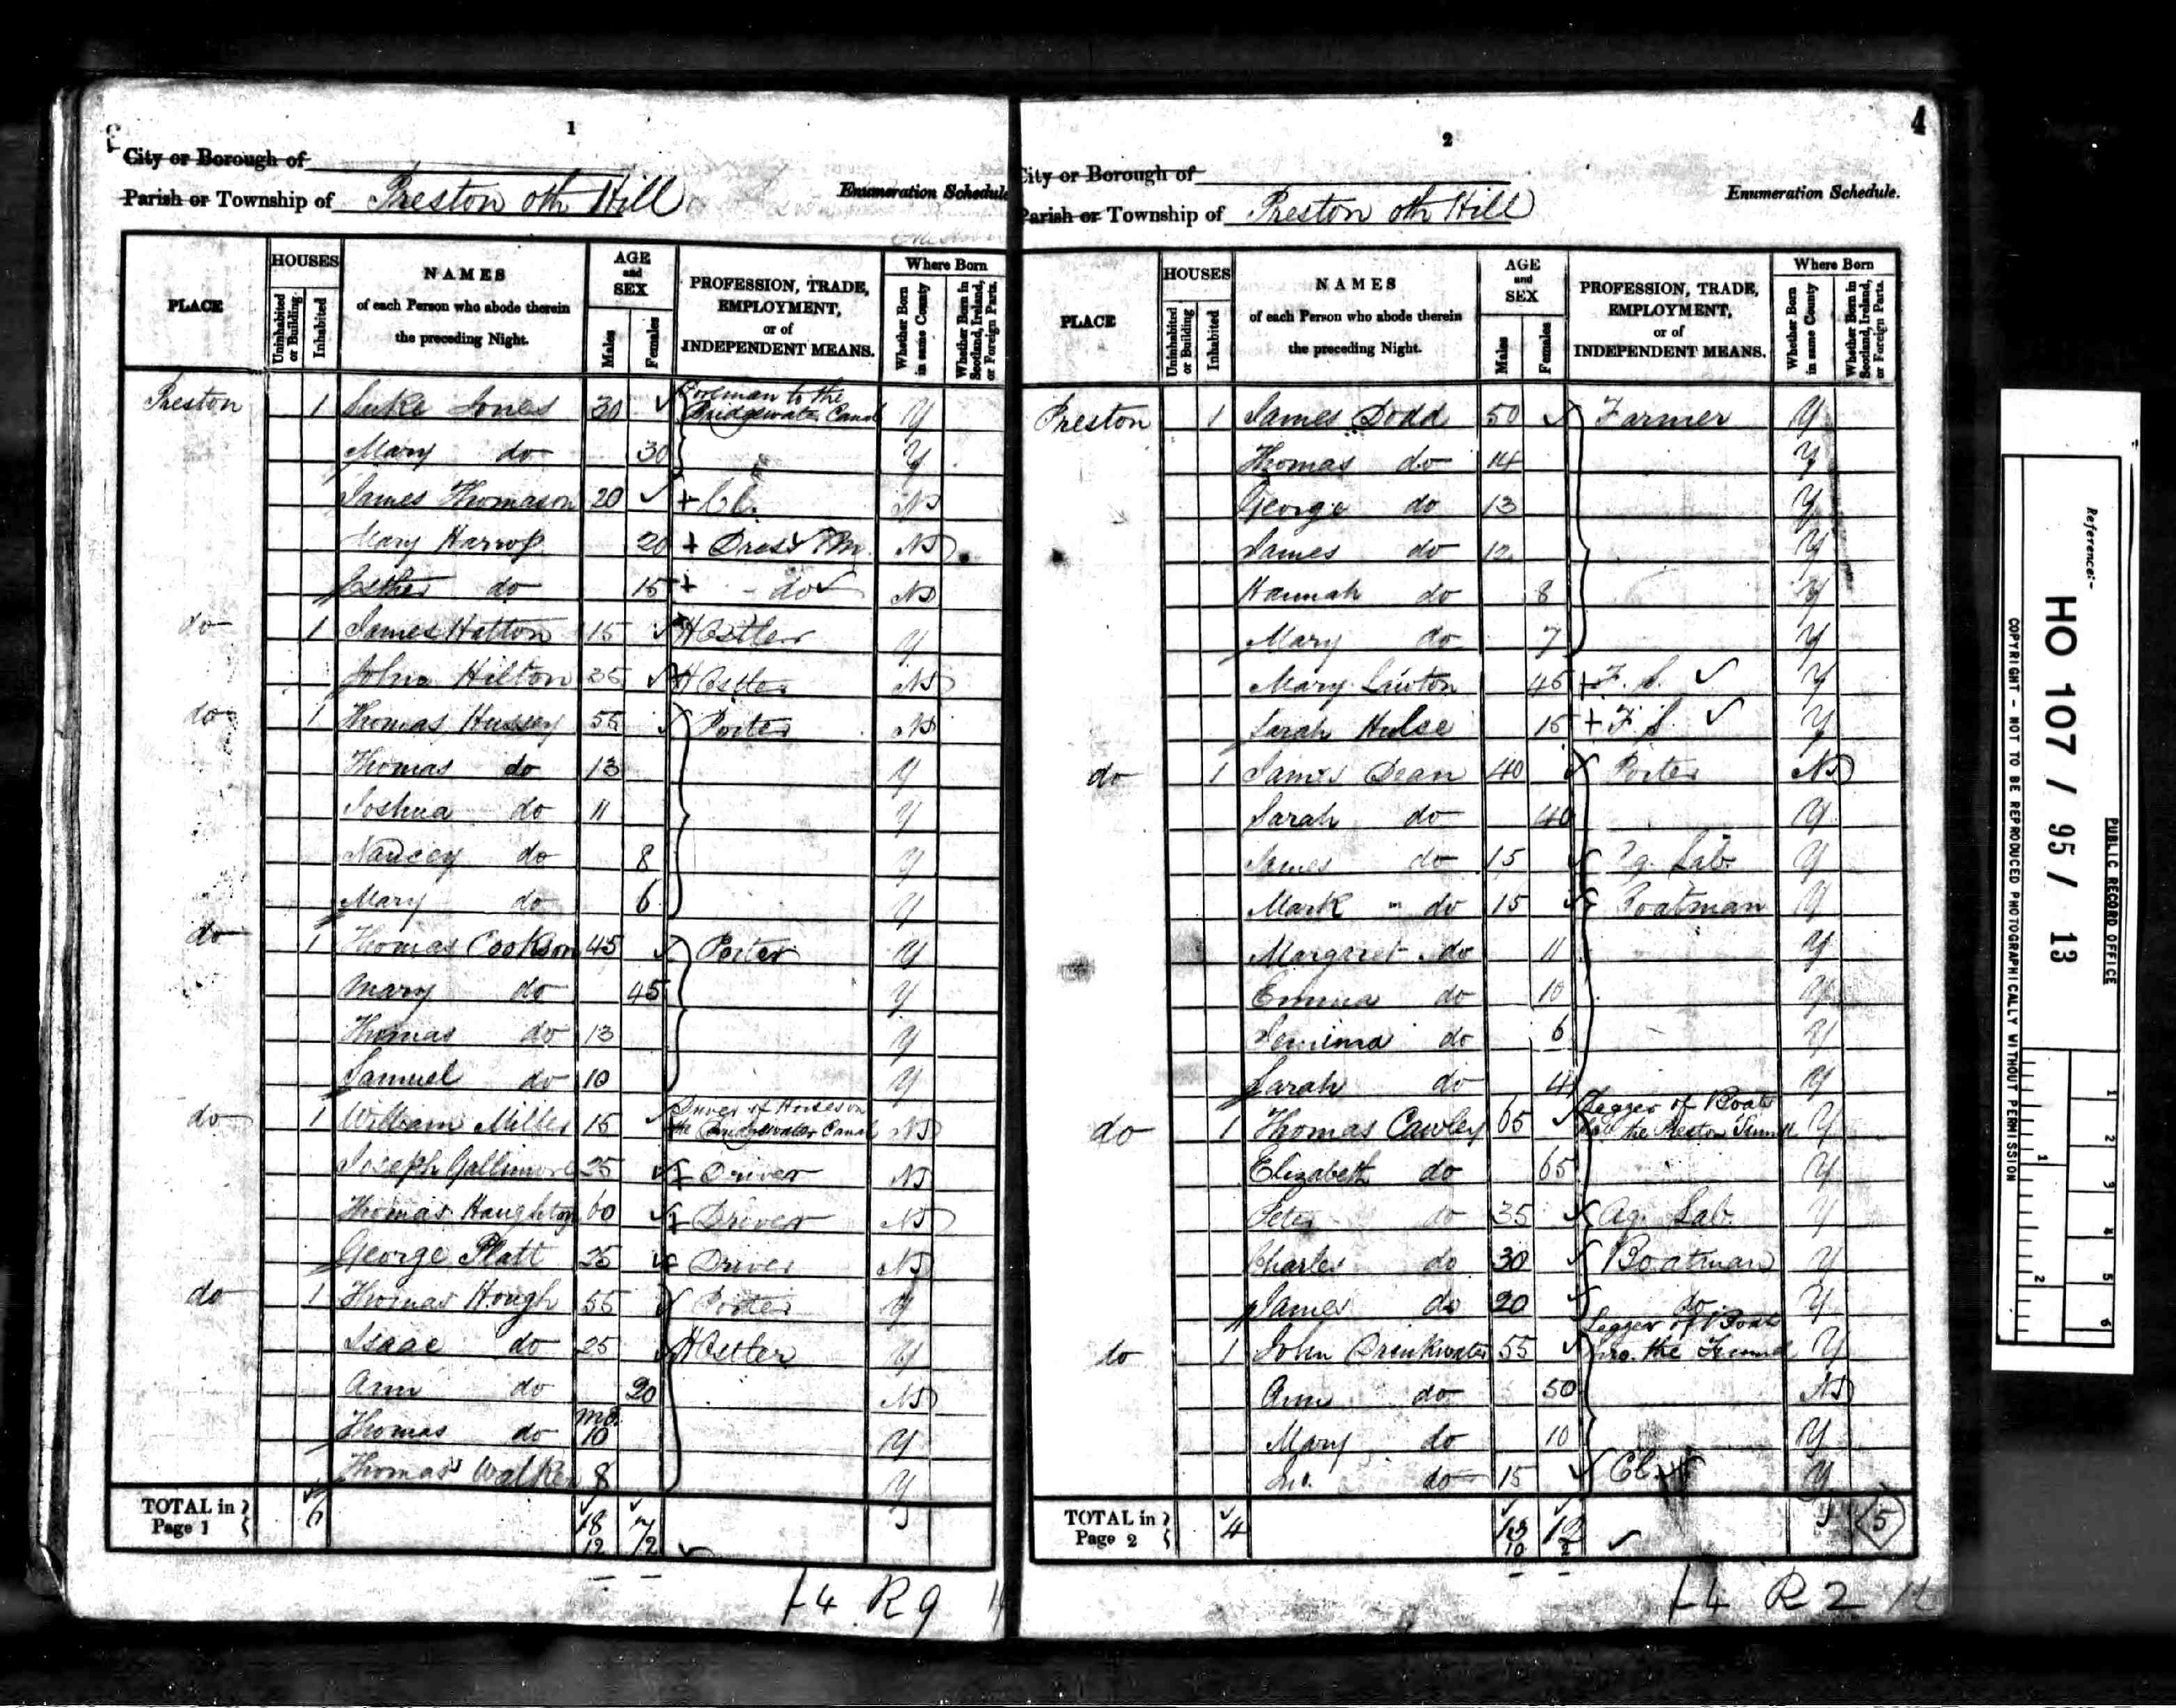 1
City or Borough of
Parish or Township of Preston oth Hill
Enumeration Schedule
PLACE
HOUSES
Uninhabited or Building
Inhabited
NAMES
of each Person who abode therein
the preceding Night.
AGE
and
SEX
Males
Females
PROFESSION, TRADE,
EMPLOYMENT,
or of
INDEPENDENT MEANS.
Where Born
Whether Born in same County
Whether Born in Scotland, Ireland, or Foreign Parts.
Preston 1 Luke Jones 30 to the Bridgewater Canal Y
Mary do 30 Y
James Thomason 20 + Cl. N
Mary Harrop 20 + Dress M. N
Esther do 15 + do N
do 1 James Hatton 15 Hostler Y
John Hilton 35 Hostler N
do 1 Thomas Hussey 55 Porter N
Thomas do 13 Y
Joshua do 11 Y
Nancey do 8 Y
Mary do 6 Y
do 1 Thomas Cookson 45 Porter Y
Mary do 45 Y
Thomas do 13 Y
Samuel do 10 Y
do 1 William Miller 15 Driver of Horses on the Bridgewater Canal N
Joseph Gallimore 25 Driver N
Thomas Haughton 60 Driver N
George Platt 25 Driver N
do 1 Thomas Hough 55 Porter Y
Isaac do 25 Hostler Y
Ann do 20 N
Thomas do mo. 10 Y
Thomas Walker 8 Y
TOTAL in Page 1
6 18 7
12 12
+4 R 9
2
4
City or Borough of
Parish or Township of Preston oth Hill
Enumeration Schedule.
PLACE
HOUSES
Uninhabited or Building
Inhabited
NAMES
of each Person who abode therein
the preceding Night.
AGE
and
SEX
Males
Females
PROFESSION, TRADE,
EMPLOYMENT,
or of
INDEPENDENT MEANS.
Where Born
Whether Born in same County
Whether Born in Scotland, Ireland, or Foreign Parts.
Preston 1 James Dodd 50 Farmer Y
Thomas do 14 Y
George do 13 Y
James do 12 Y
Hannah do 8 Y
Mary do 7 Y
Mary Lawton 45 + F. S. Y
Sarah Hulse 15 + F. S. Y
do 1 James Dean 40 Porter N
Sarah do 40 Y
James do 15 Ag. Lab. Y
Mark do 15 Boatman Y
Margaret do 11 Y
Emma do 10 Y
Jemima do 6 Y
Sarah do 4 Y
do 1 Thomas Cawley 65 Legger of Boats the Preston Tunnel Y
Elizabeth do 65 Y
Peter do 35 Ag. Lab. Y
Charles do 30 Boatman Y
James do 20 do Y
do 1 John Drinkwater 55 Legger of Boats thro. the Tunnel Y
Ann do 50 N
Mary do 10 Y
Jno. do 15 Cl. Y
TOTAL in Page 2
4 13 12
10 2
5
+4 R 2
Reference:-
HO 107 / 95 / 13
PUBLIC RECORD OFFICE
COPYRIGHT - NOT TO BE REPRODUCED PHOTOGRAPHICALLY WITHOUT PERMISSION
1 2 3 4 5 6
1 2